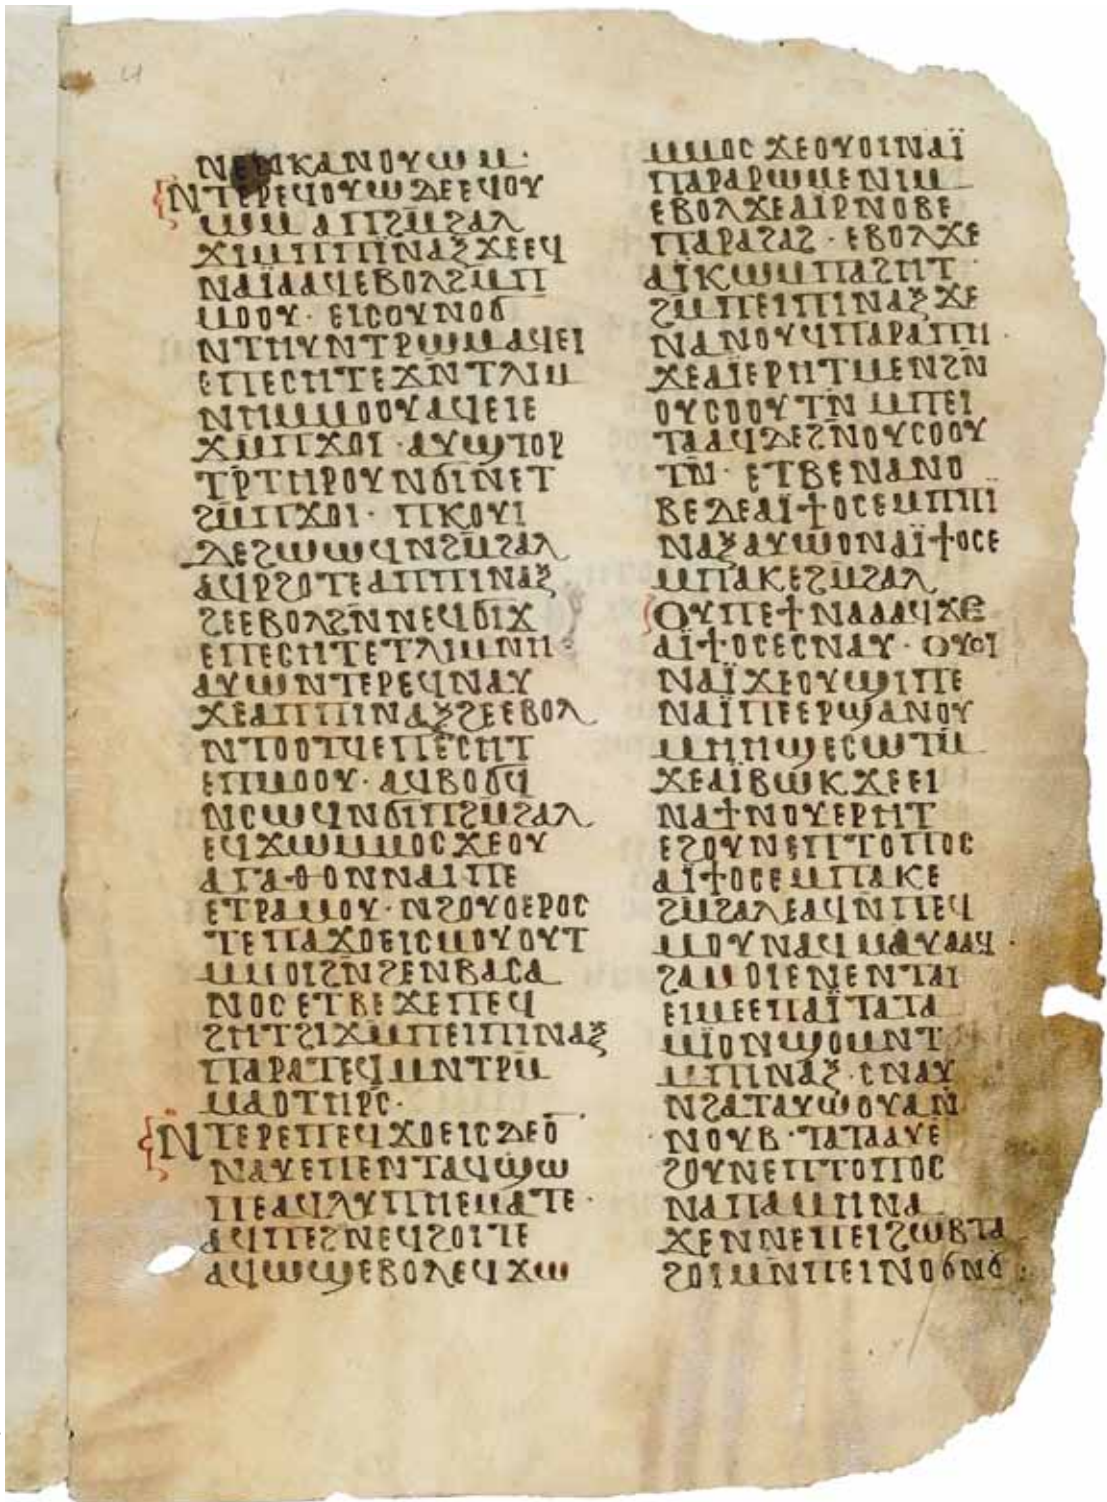 ⲛⲉⲛⲕⲁⲛⲟⲩⲱⲙ·
ⲛⲧⲉⲣⲉϥⲟⲩⲱ ⲇⲉⲉϥⲟⲩ
ⲱⲙ ⲁⲡϩⲙϩⲁⲗ
ϫⲓⲙⲡⲡⲓⲛⲁⲝ ϫⲉⲉϥ
ⲛⲁⲓ̈ⲁⲁϥⲉⲃⲟⲗϩⲙⲡ
ⲙⲟⲟⲩ· ⲉⲓⲥⲟⲩⲛⲟϭ
ⲛⲧⲏⲩⲛⲧⲣⲱⲙⲁϥⲉⲓ
ⲉⲡⲉⲥⲏⲧⲉϫⲛ̄ⲧⲗⲓⲙ
ⲛⲏⲙⲙⲟⲟⲩⲁϥⲉⲓⲉ
ϫⲙ̄ⲡϫⲟⲓ· ⲁⲩϣⲧⲟⲣ
ⲧⲣ̄ⲧⲏⲣⲟⲩⲛϭⲓⲛⲉⲧ
ϩⲙ̄ⲡϫⲟⲓ· ⲡⲕⲟⲩⲓ
ⲇⲉϩⲱⲱϥⲛϩⲙ̄ϩⲁⲗ
ⲁϥⲣϩⲟⲧⲉⲁⲡⲡⲓⲛⲁⲝ
ϩⲉⲉⲃⲟⲗϩⲛ̄ⲛⲉϥϭⲓϫ
ⲉⲡⲉⲥⲏⲧⲉⲧⲗⲓⲙⲛⲏ·
ⲁⲩⲱⲛⲧⲉⲣⲉϥⲛⲁⲩ
ϫⲉⲁⲡⲡⲓⲛⲁⲝϩⲉⲉⲃⲟⲗ
ⲛⲧⲟⲟⲧϥⲉⲡⲉⲥⲏⲧ
ⲉⲡⲙⲟⲟⲩ· ⲁϥⲃⲟϭϥ
ⲛⲥⲱϥⲛϭⲓⲡϩⲙ̄ϩⲁⲗ
ⲉϥϫⲱⲙⲙⲟⲥϫⲉⲟⲩ
ⲁⲅⲁⲑⲟⲛⲛⲁⲓⲡⲉ
ⲉⲧⲣⲁⲙⲟⲩ· ⲛϩⲟⲩⲟⲉⲣⲟⲥ
ⲧⲉⲡⲁϫⲟⲉⲓⲥⲙⲟⲩⲟⲩⲧ
ⲙⲙⲟⲓϩⲛ̄ϩⲉⲛⲃⲁⲥⲁ
ⲛⲟⲥⲉⲧⲃⲉϫⲉⲡⲉϥ
ϩⲏⲧϩⲓϫⲙ̄ⲡⲉⲓⲡⲓⲛⲁⲝ
ⲡⲁⲣⲁⲧⲉϥⲙⲛⲧⲣⲙ̄
ⲙⲁⲟⲧⲏⲣⲥ̄·
ⲛ̈ⲧⲉⲣⲉⲡⲉϥϫⲟⲉⲓⲥⲇⲉⲟ̄
ⲛⲁⲩⲉⲡⲉⲛⲧⲁϥϣⲱ
ⲡⲉⲁϥⲗⲩⲡⲏⲉⲙⲁⲧⲉ·
ⲁϥⲡⲉϩⲛⲉϥϩⲟⲓⲧⲉ
ⲁϥⲱϣⲉⲃⲟⲗⲉϥϫⲱ
ⲙⲙⲟⲥ ϫⲉⲟⲩⲟⲓⲛⲁⲓ̈
ⲡⲁⲣⲁⲣⲱⲙⲉⲛⲓⲙ
ⲉⲃⲟⲗϫⲉⲁⲓ̈ⲣⲛⲟⲃⲉ
ⲡⲁⲣⲁϩⲁϩ· ⲉⲃⲟⲗϫⲉ
ⲁⲓ̈ⲕⲱⲙⲡⲁϩⲏⲧ
ϩⲙⲡⲉⲓⲡⲓⲛⲁⲝ ϫⲉ
ⲛⲁⲛⲟⲩϥⲡⲁⲣⲁⲡⲏ·
ϫⲉⲁⲓ̈ⲉⲣⲏⲧⲙⲉⲛϩⲛ̄
ⲟⲩⲥⲟⲟⲩⲧⲛ̄ ⲙⲡⲉⲓ
ⲧⲁⲁϥⲇⲉϩⲛ̄ⲟⲩⲥⲟⲟⲩ
ⲧⲛ̄· ⲉⲧⲃⲉⲛⲁⲛⲟ
ⲃⲉ ⲇⲉⲁⲓ̈ϯⲟⲥⲉⲙⲡⲡⲓ
ⲛⲁⲝⲁⲩⲱⲟⲛⲁⲓ̈ϯⲟⲥⲉ
ⲙⲡⲁⲕⲉϩⲙ̄ϩⲁⲗ
ⲟⲩⲡⲉϯⲛⲁⲁⲁϥϫⲉ
ⲁⲓ̈ϯⲟⲥⲉⲥⲛⲁⲩ· ⲟⲩⲟⲓ
ⲛⲁⲓ̈ϫⲉⲟⲩϣⲓⲡⲉ
ⲛⲁⲓ̈ⲡⲉⲉⲣϣⲁⲛⲟⲩ
ⲙⲏⲏϣⲉⲥⲱⲧⲙ̄
ϫⲉⲁⲓ̈ⲃⲱⲕ ϫⲉⲉⲓ
ⲛⲁϯⲛⲟⲩⲉⲣⲏⲧ
ⲉϩⲟⲩⲛⲉⲡⲧⲟⲡⲟⲥ
ⲁⲓ̈ϯⲟⲥⲉⲙⲡⲁⲕⲉ
ϩⲙϩⲁⲗⲉⲁϥⲛ̄ⲡⲉϥ
ⲙⲟⲩⲛⲁϥⲙⲁⲩⲁⲁϥ·
ϩⲁⲙⲟⲓⲉⲛⲉⲛⲧⲁⲓ
ⲉⲓⲙⲉⲉⲡⲁⲓ̈ⲧⲁⲧⲁ
ⲙⲓⲟⲛϣⲟⲙⲛⲧ
ⲙⲡⲓⲛⲁⲝ· ⲥⲛⲁⲩ
ⲛϩⲁⲧⲁⲩⲱⲟⲩⲁⲛ̄
ⲛⲟⲩⲃ· ⲧⲁⲧⲁⲁⲩⲉ̄
ϩⲟⲩⲛⲉⲡⲧⲟⲡⲟⲥ
ⲛⲁⲡⲁⲙⲏⲛⲁ
ϫⲉⲛⲛⲉⲡⲉⲓϩⲱⲃⲧⲁ
ϩⲟⲓⲙⲛ̄ⲡⲉⲓⲛⲟϭⲛϭ